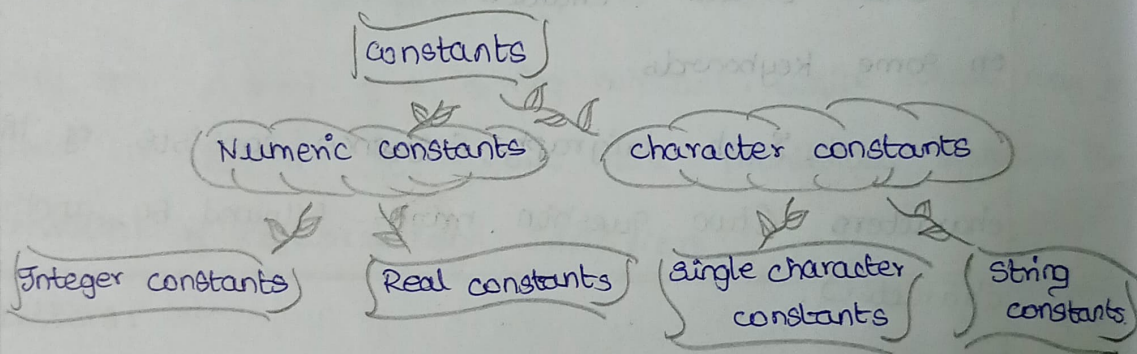 Constants
Numeric constants
character constants
Integer constants
Real constants
single character
constants
string
constants.